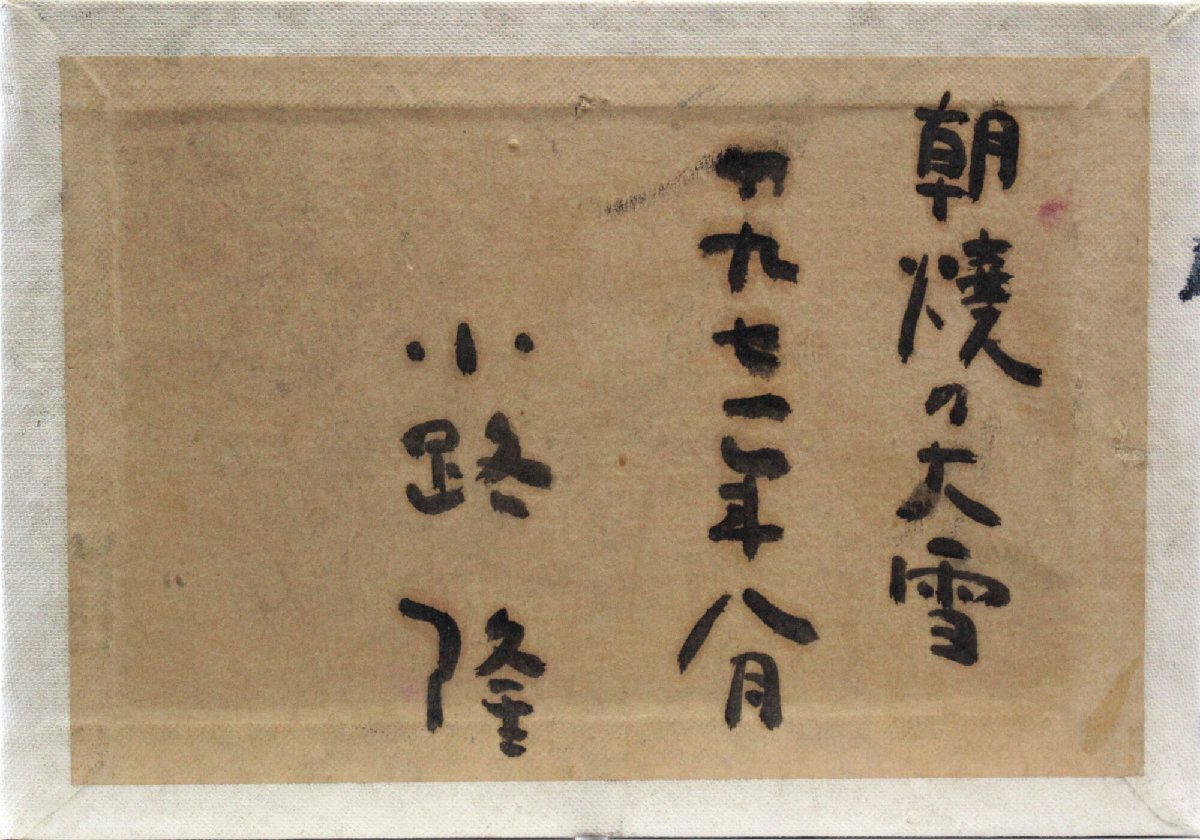 朝燒の大雪
一九七一年八月
小路隆